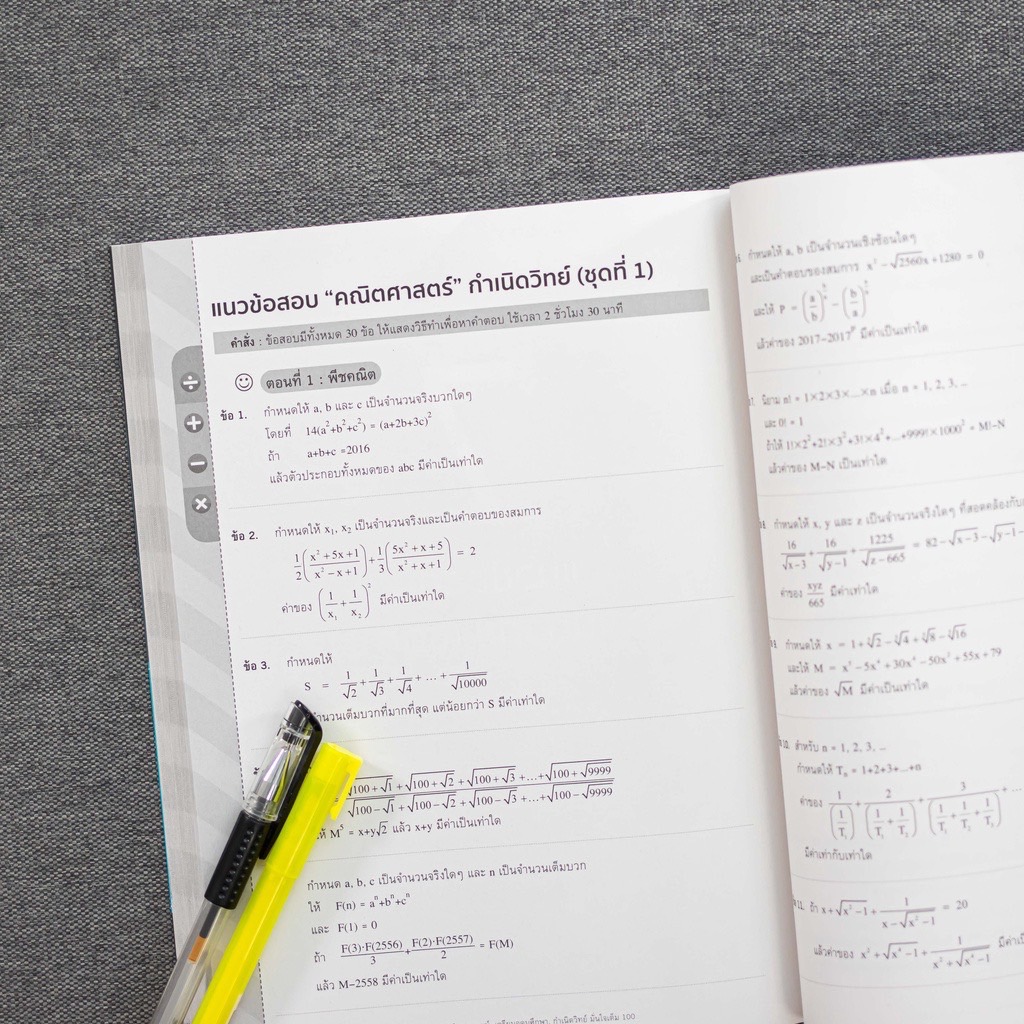 แนวข้อสอบ “คณิตศาสตร์” กำเนิดวิทย์ (ชุดที่ 1)
คำสั่ง : ข้อสอบมีทั้งหมด 30 ข้อ ให้แสดงวิธีทำเพื่อหาคำตอบ ใช้เวลา 2 ชั่วโมง 30 นาที
ตอนที่ 1 : พีชคณิต
ข้อ 1. กำหนดให้ a, b และ c เป็นจำนวนจริงบวกใดๆ
โดยที่ 14(a²+b²+c²) = (a+2b+3c)²
ถ้า a+b+c =2016
แล้วตัวประกอบทั้งหมดของ abc มีค่าเป็นเท่าใด
ข้อ 2. กำหนดให้ x₁, x₂ เป็นจำนวนจริงและเป็นคำตอบของสมการ
1/2((x²+5x+1)/(x²−x+1))+1/3((5x²+x+5)/(x²+x+1)) = 2
ค่าของ (1/x₁+1/x₂)² มีค่าเป็นเท่าใด
ข้อ 3. กำหนดให้
S = 1/√2+1/√3+1/√4+ …+1/√10000
จำนวนเต็มบวกที่มากที่สุด แต่น้อยกว่า S มีค่าเท่าใด
√100+√1+√100+√2+√100+√3+…+√100+√9999
√100−√1+√100−√2+√100−√3+…+√100−√9999
M⁵ = x+y√2 แล้ว x+y มีค่าเป็นเท่าใด
กำหนด a, b, c เป็นจำนวนจริงใดๆ และ n เป็นจำนวนเต็มบวก
ให้ F(n) = aⁿ+bⁿ+cⁿ
และ F(1) = 0
ถ้า F(3)·F(2556)/3+F(2)·F(2557)/2 = F(M)
แล้ว M−2558 มีค่าเป็นเท่าใด
กำเนิดวิทย์ มั่นใจเต็ม 100
กำหนดให้ a, b เป็นจำนวนเชิงซ้อนใดๆ
และเป็นคำตอบของสมการ x²−√2560x+1280 = 0
และให้ P = (a/b)−(b/a)
แล้วค่าของ 2017−2017ᴾ มีค่าเป็นเท่าใด
นิยาม n! = 1×2×3×...×n เมื่อ n = 1, 2, 3, ...
และ 0! = 1
ถ้าให้ 1!×2²+2!×3²+3!×4²+...+999!×1000² = M!−N
แล้วค่าของ M−N เป็นเท่าใด
กำหนดให้ x, y และ z เป็นจำนวนจริงใดๆ ที่สอดคล้องกับ
16/√x−3+16/√y−1+1225/√z−665 = 82−√x−3−√y−1−
ค่าของ xyz/665 มีค่าเป็นเท่าใด
กำหนดให้ x = 1+∜2−∜4+∜8−∜16
และให้ M = x⁵−5x⁴+30x⁴−50x²+55x+79
แล้วค่าของ √M มีค่าเป็นเท่าใด
สำหรับ n = 1, 2, 3, ...
กำหนดให้ Tₙ = 1+2+3+...+n
ค่าของ 1/(1/T₁)+2/(1/T₁+1/T₂)+3/(1/T₁+1/T₂+1/T₃)+...
มีค่าเท่ากับเท่าใด
11. ถ้า x+√x²−1+1/(x−√x²−1) = 20
แล้วค่าของ x²+√x⁴−1+1/(x²+√x⁴−1)